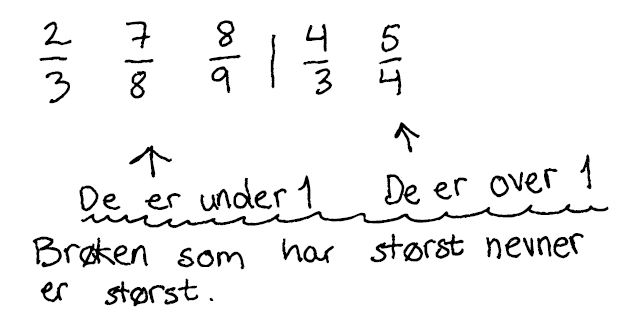 2/3 7/8 8/9 | 4/3 5/4
De er under 1 De er over 1
Brøken som har størst nevner
er størst.